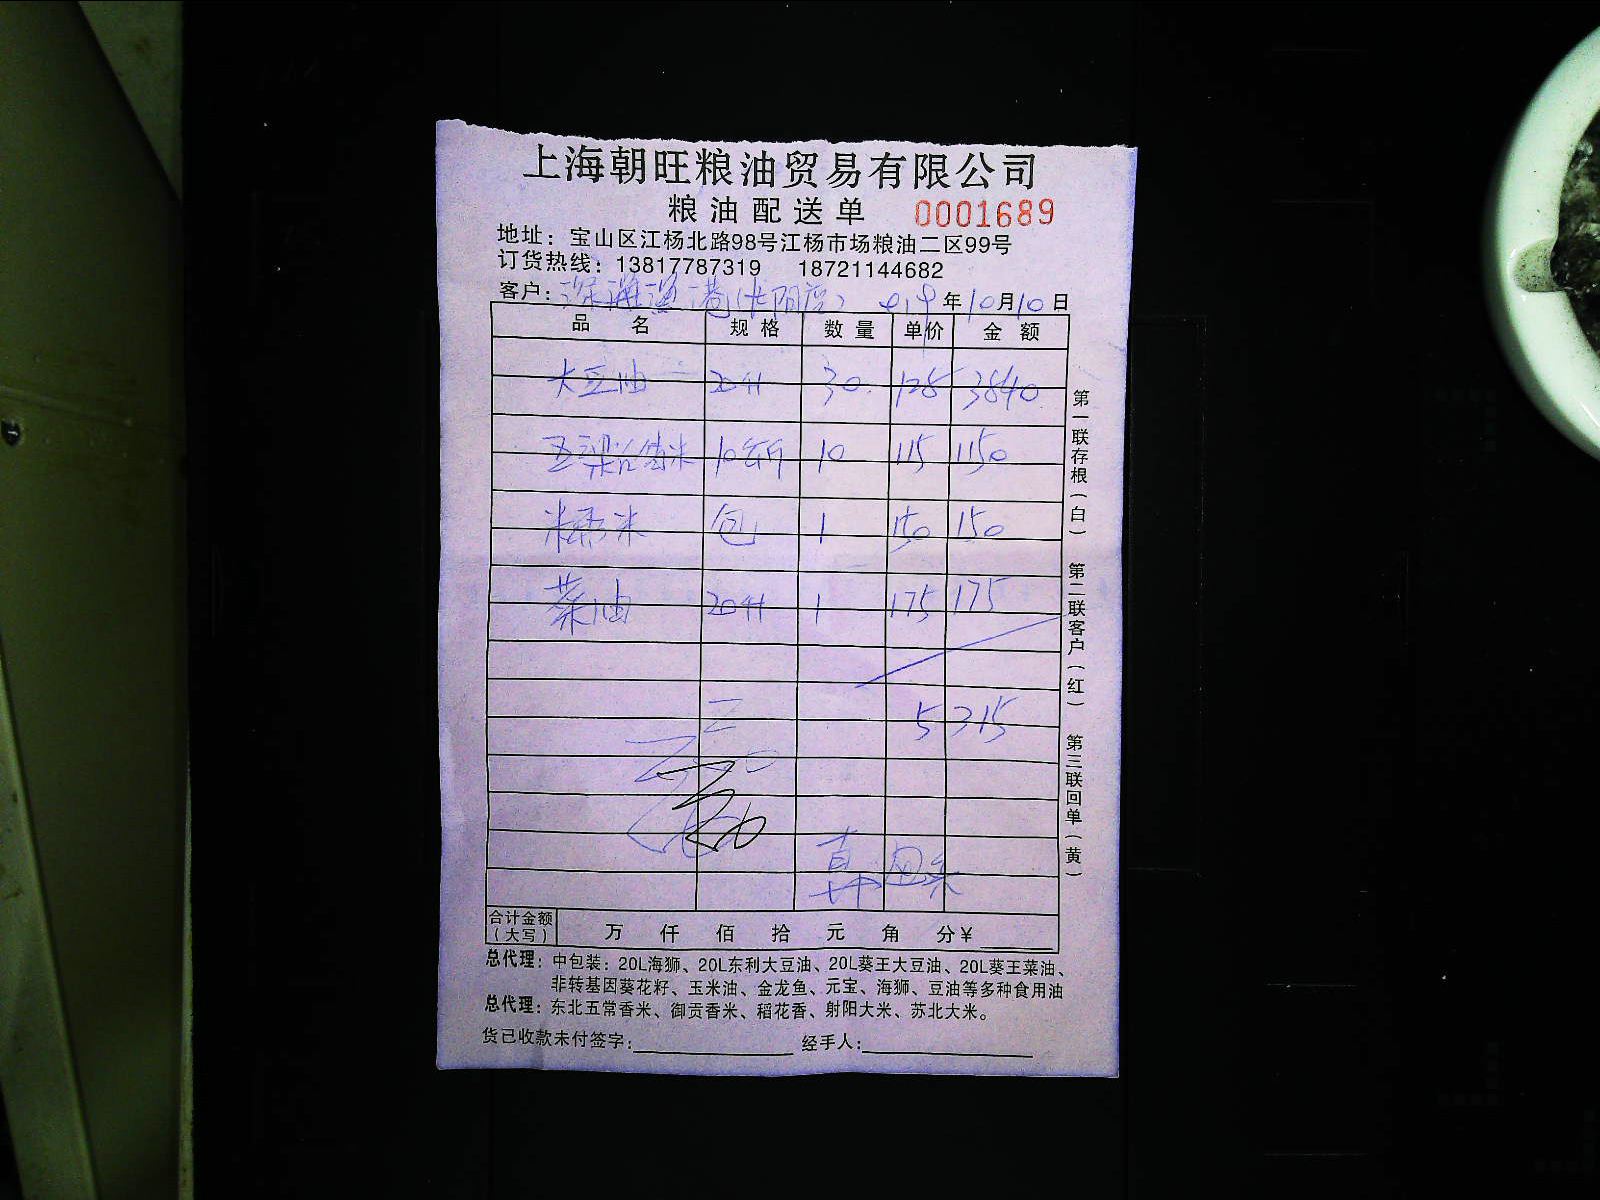 上海朝旺粮油贸易有限公司
粮油配送单 0001689
地址：宝山区江杨北路98号江杨市场粮油二区99号
订货热线：13817787319 18721144682
客户： 年10月10日
品名 规格 数量 单价 金额
大豆油 20升 30 128 3840
10 115 1150
米 包 1 150 150
菜油 20升 1 175 175
5315
合计金额（大写） 万 仟 佰 拾 元 角 分￥
总代理：中包装：20L海狮、20L东利大豆油、20L葵王大豆油、20L葵王菜油、
非转基因葵花籽、玉米油、金龙鱼、元宝、海狮、豆油等多种食用油
总代理：东北五常香米、御贡香米、稻花香、射阳大米、苏北大米。
货已收款未付签字： 经手人：
第一联存根（白） 第二联客户（红） 第三联回单（黄）